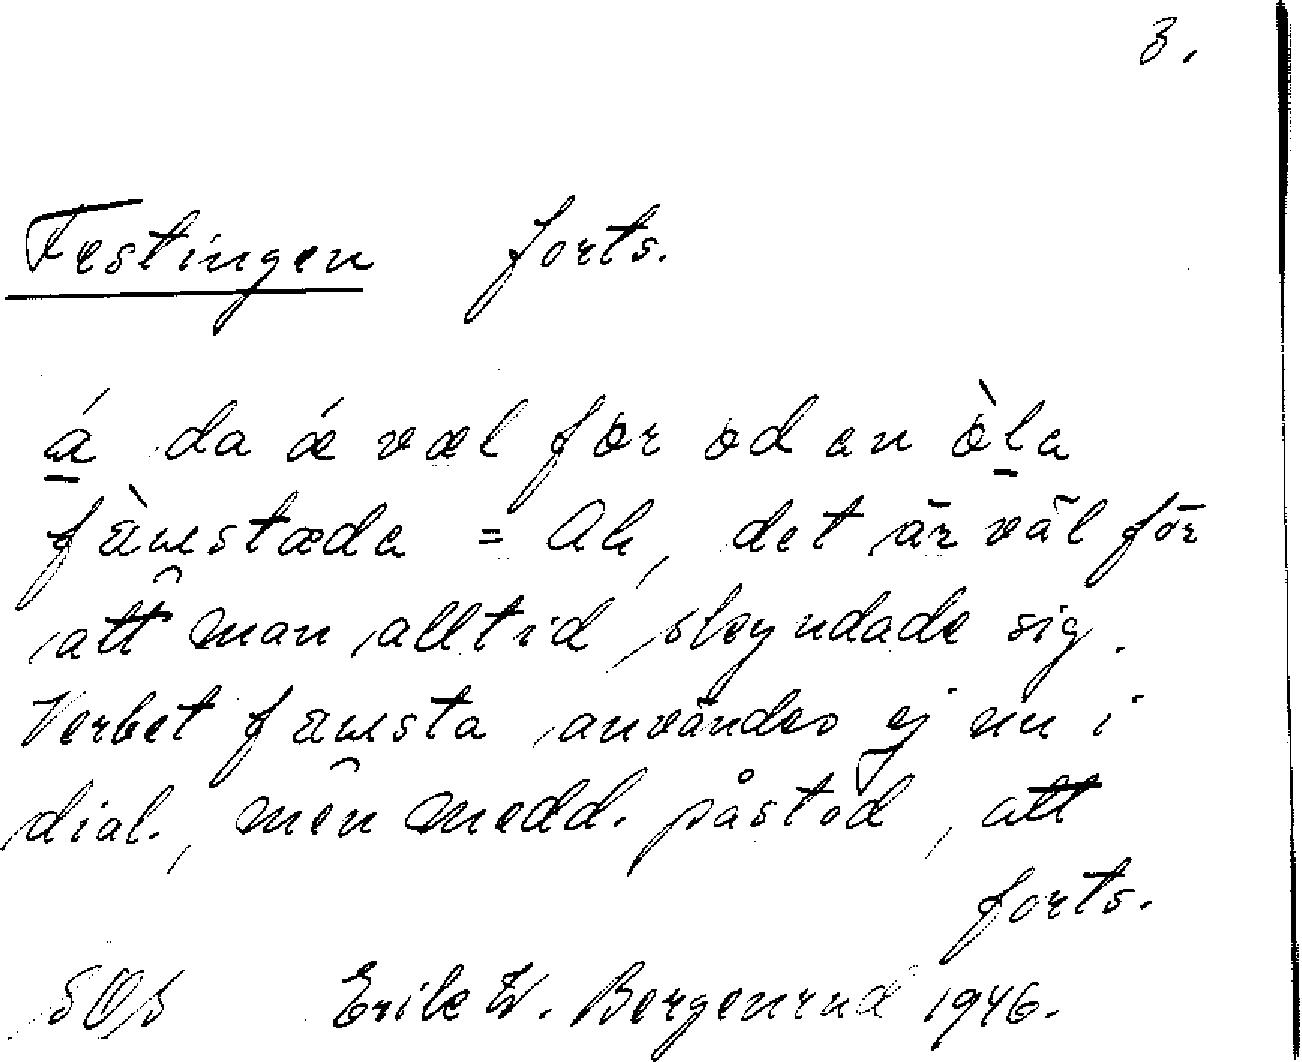 3.
Festingen forts.
á da ǽ væl før od an òla
fæ̀mstæda = Ah, det är väl för
att man alltid skyndade sig.
Verbet fæmsta användes ej nu i
dial., men medd. påstod, att
forts.
SOS Erik W. Bergenrud 1946.